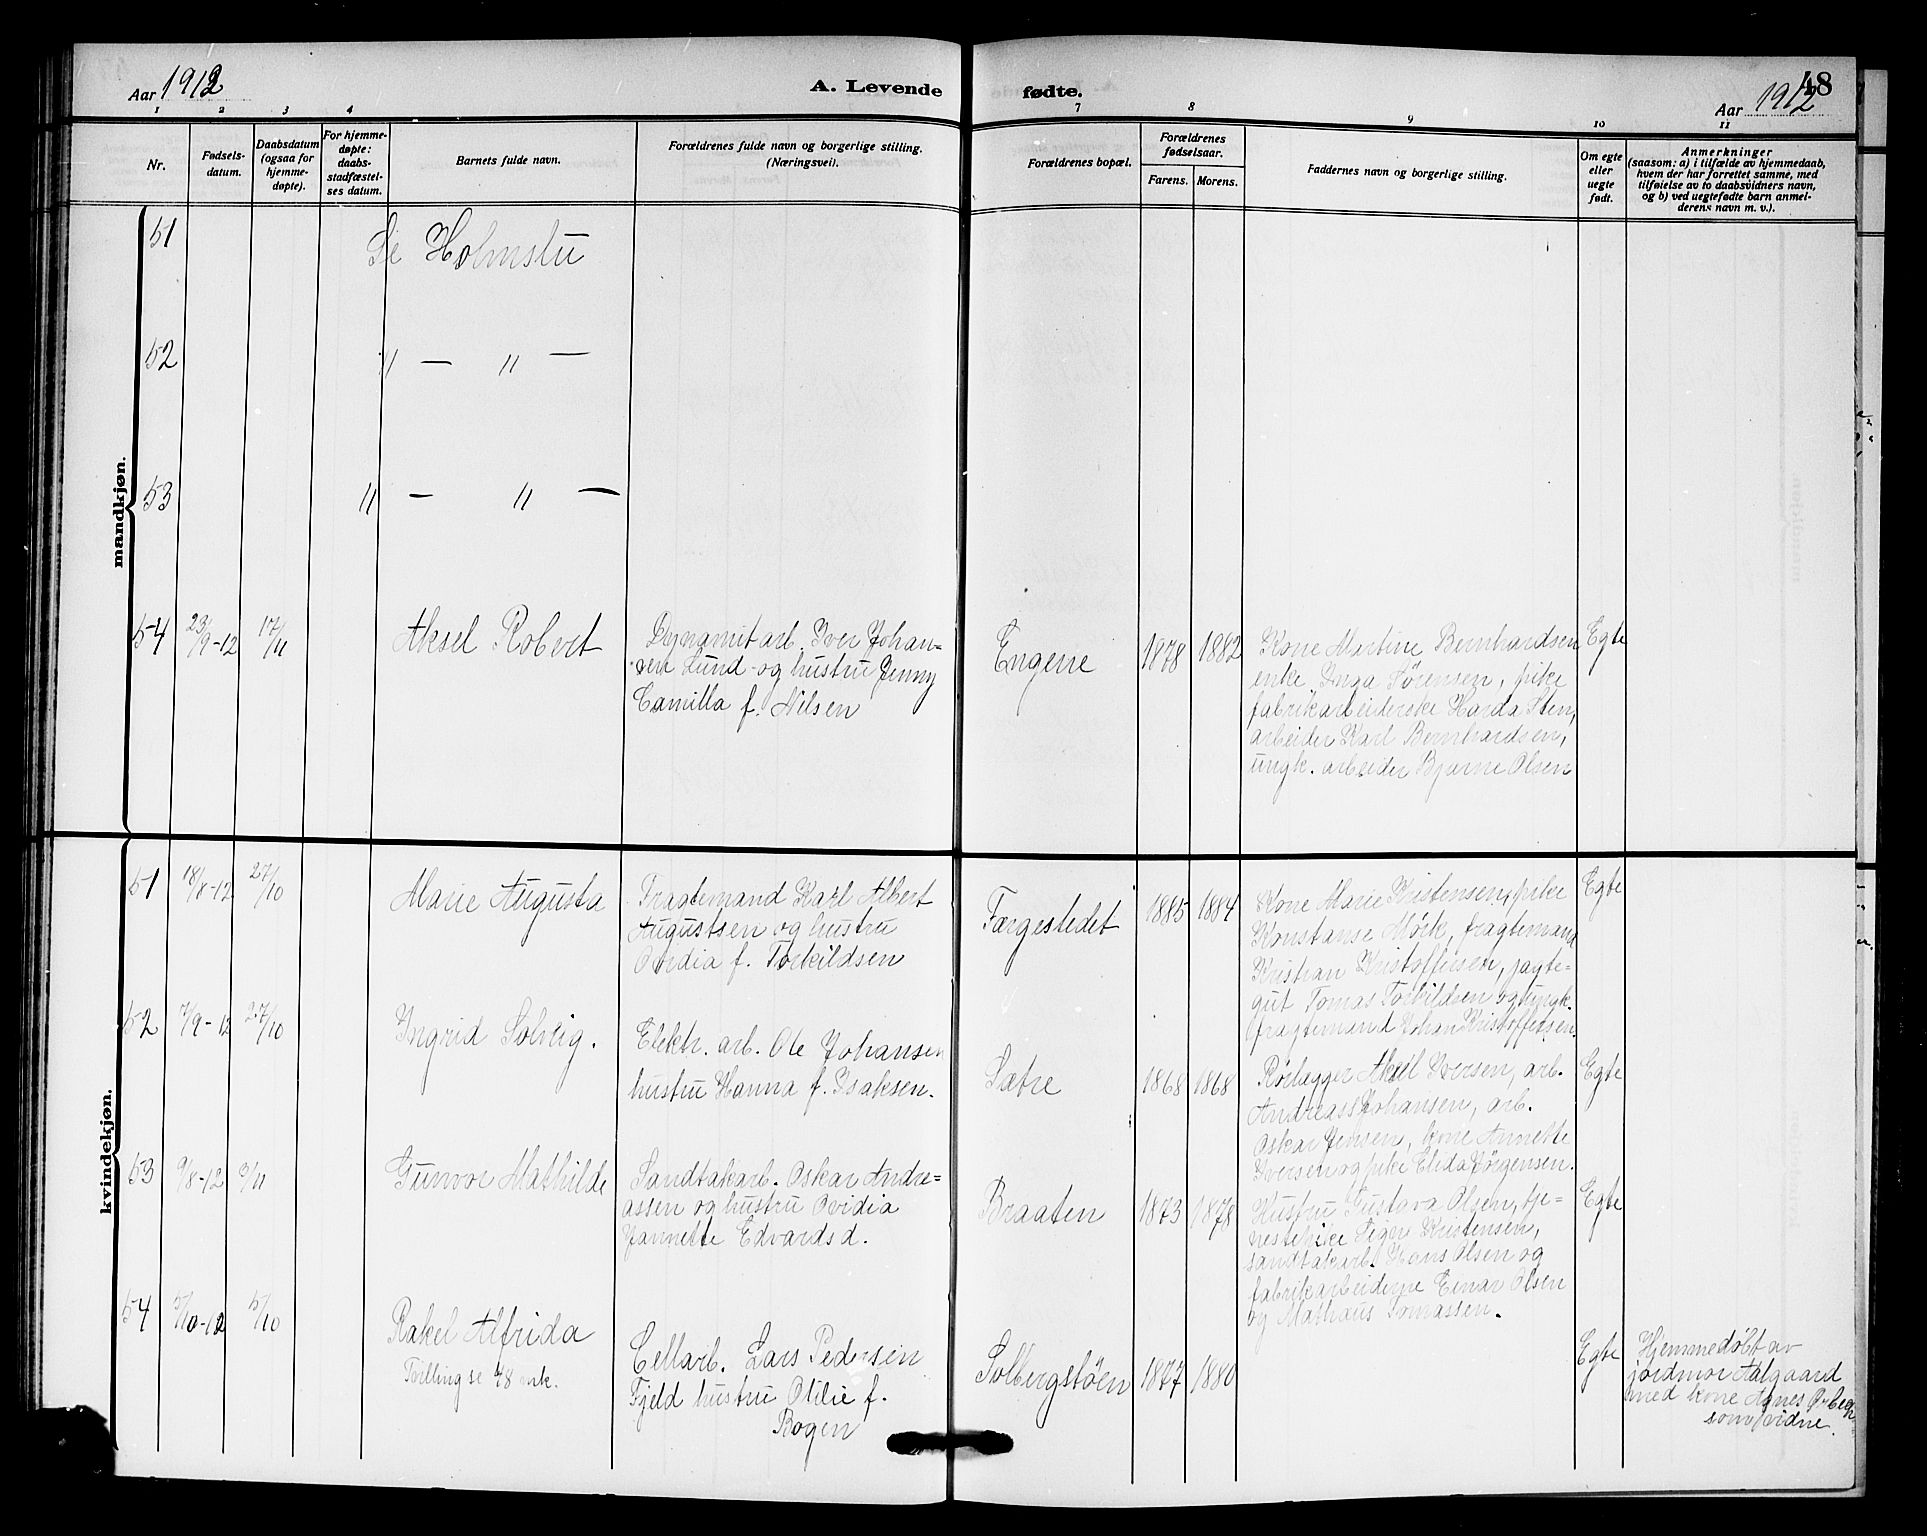 Aar 1912
A. Levende
fødte.
48
Aar 1912
1 2 3 4 7 8 9 10 11
Nr.
Fødsels-
datum.
Daabsdatum
(ogsaa for
hjemme-
døpte).
For hjemme-
døpte:
daabs-
stadfæstel-
ses datum.
Barnets fulde navn.
Forældrenes fulde navn og borgerlige stilling.
(Næringsvei).
Forældrenes bopæl.
Forældrenes
fødselsaar.
Farens. Morens.
Faddernes navn og borgerlige stilling.
Om egte
eller
uegte
født.
Anmerkninger
(saasom: a) i tilfælde av hjemmedaab,
hvem der har forrettet samme, med
tilføielse av to daabsvidners navn,
og b) ved uegtefødte barn anmel-
derens navn m. v.).
mandkjøn.
51
Se Holmsbu
52
" — " —
53
" — " —
54
23/9-12
17/11
Aksel Robert
Dynamitarb. Iver Johan-
sen Lund og hustru Jenny
Camilla f. Nilsen
Engene
1878 1882
Kone Martine Bernhardsen
enke Inga Sørensen, pike
fabrikarbeiderske Harda Sten,
arbeider Karl Bernhardsen,
ungk. arbeider Bjarne Olsen
Egte
kvindekjøn.
51
18/8-12
27/10
Marie Augusta
Fragtemand Karl Albert
Augustsen og hustru
Ovidia f. Torkildsen
Færgestedet
1885 1884
Kone Marie Kristensen, pike
Konstanse Mörk, fragtemand
Kristian Kristoffersen, jagte-
gut Tomas Torkildsen og ungk.
fragtemand Johan Kristoffersen.
Egte
52
7/9-12
27/10
Ingrid Solveig.
Elektr. arb. Ole Johansen
hustru Hanna f. Isaksen.
Sætre
1868 1868
Rørlægger Aksel Iversen, arb.
Andreas Johansen, arb.
Oskar Jensen, kone Annette
Iversen og pike Elida Jørgensen.
Egte
53
9/8-12
3/11
Gunvor Mathilde
Sandtakarb. Oskar Andre-
assen og hustru Ovidia
Jannette Edvardsd.
Braaten
1873 1878
Hustru Gustava Olsen, tje-
nestepike Signe Kristensen,
sandtakarb. Hans Olsen og
fabrikarbeiderne Einar Olsen
og Mathæus Tomassen.
Egte
54
5/10-12
5/10
Rakel Alfrida
Tvilling se 48 mk.
Cellarb. Lars Pedersen
Fjeld hustru Otilie f.
Bogen
Solbergstøen
1877 1880
Egte
Hjemmedøbt av
jordmor Aalgaard
med kone Agnes
som vidne.